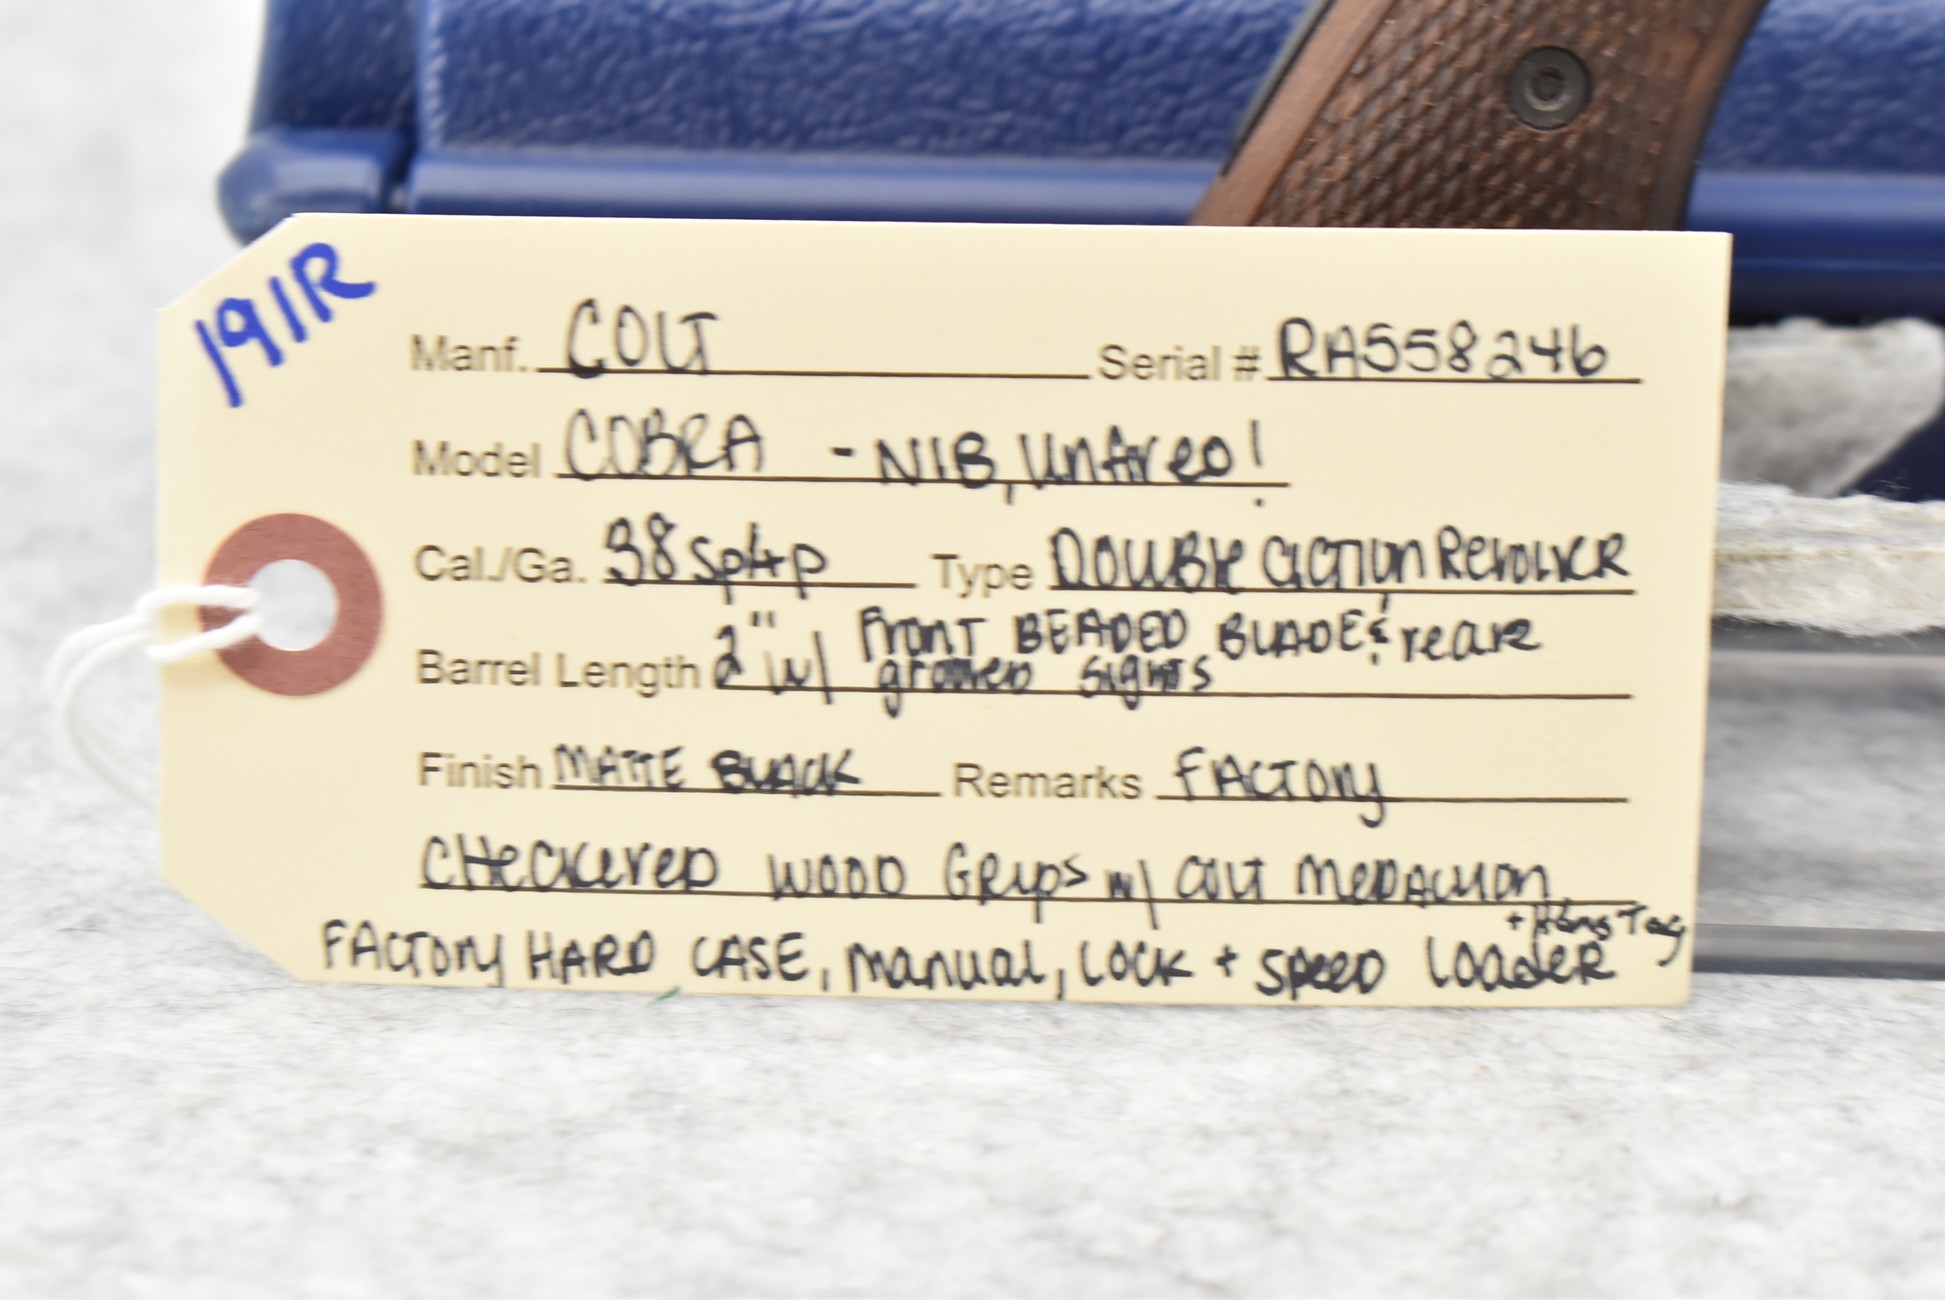 191R
Manf. COLT Serial # RA558246
Model COBRA - NIB, Unfired!
Cal./Ga. 38 Spl+p Type DOUBLE ACTION REVOLVER
Barrel Length 2" w/ FRONT BEADED BLADE & rear
grooved sights
Finish MATTE BLACK Remarks FACTORY
CHECKERED WOOD GRIPS w/ COLT MEDALLION
+ Hang Tag
FACTORY HARD CASE, Manual, LOCK + SPEED LOADER